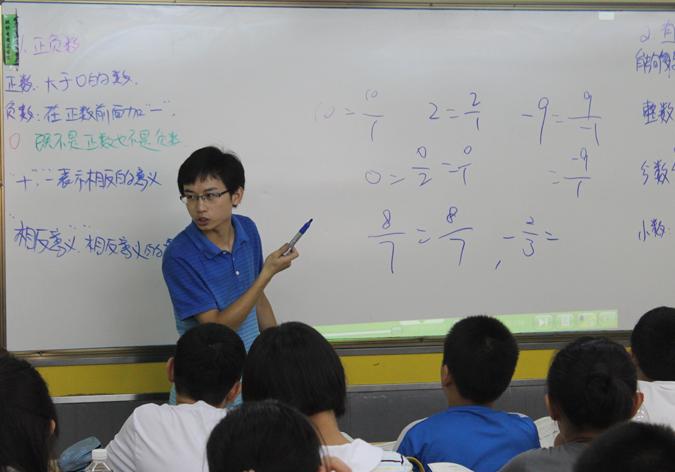 1. 正负数
正数: 大于0的数.
负数: 在正数前面加"一".
0 既不是正数也不是负数
"+" "-"表示相反的意义
"相反意义": 相反意义的
10=10/1 2=2/1 -9=9/-1
0=0/2=0/1 =-9/1
8/7=8/7, -2/3=
2. 有
整数
分数
小数: